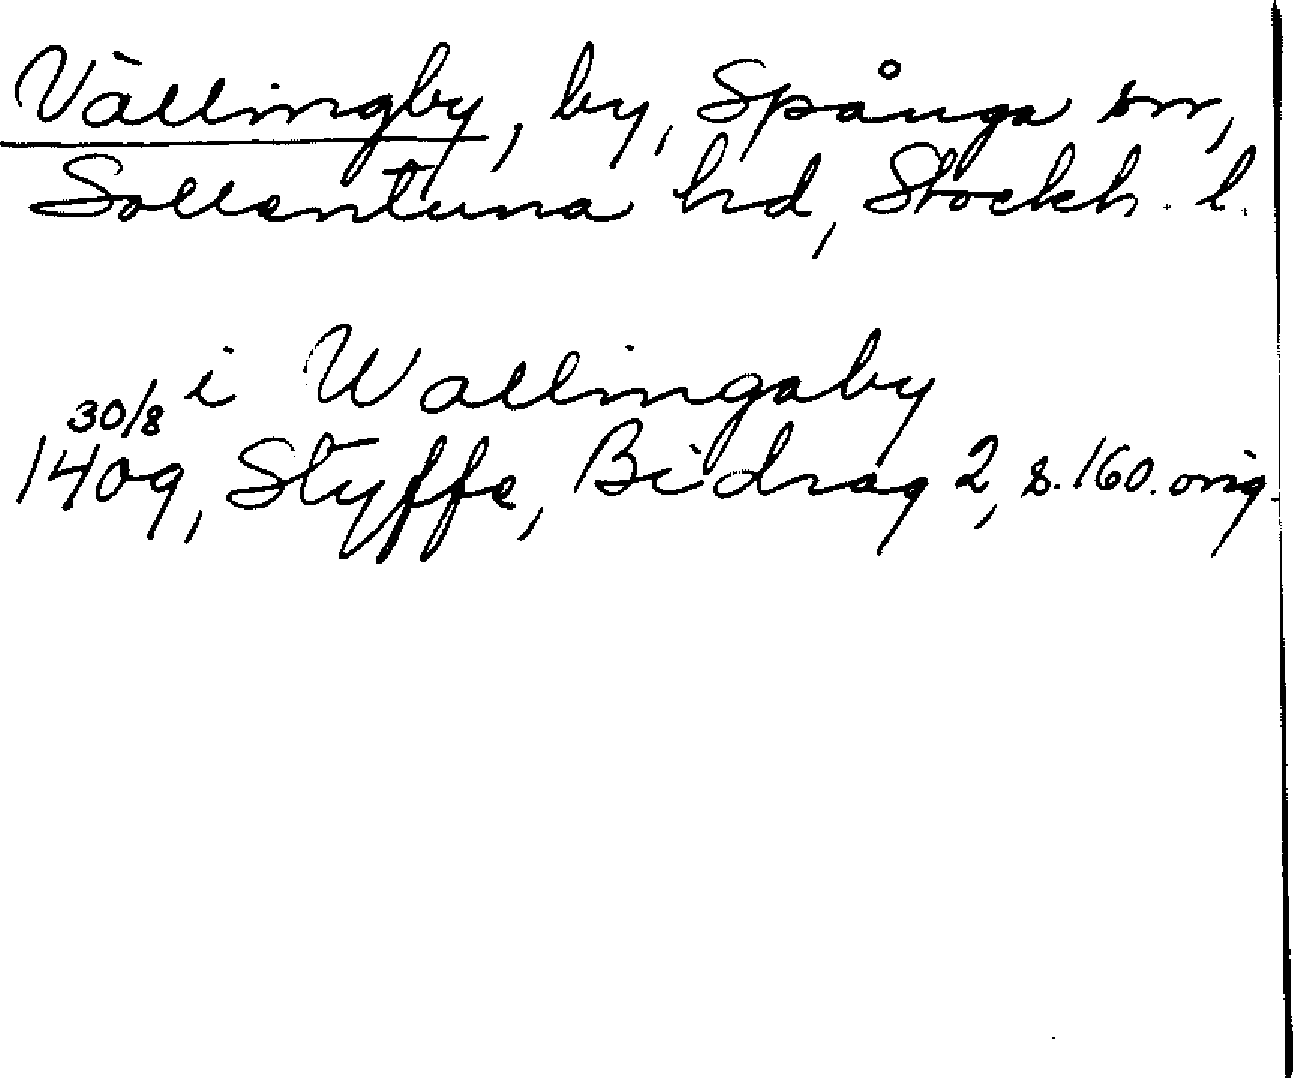 Vällingby, by, Spånga sn,
Sollentuna hd, Stockh. l.
i Wallingaby
30/8
1409, Styffe, Bidrag 2, s. 160. orig.